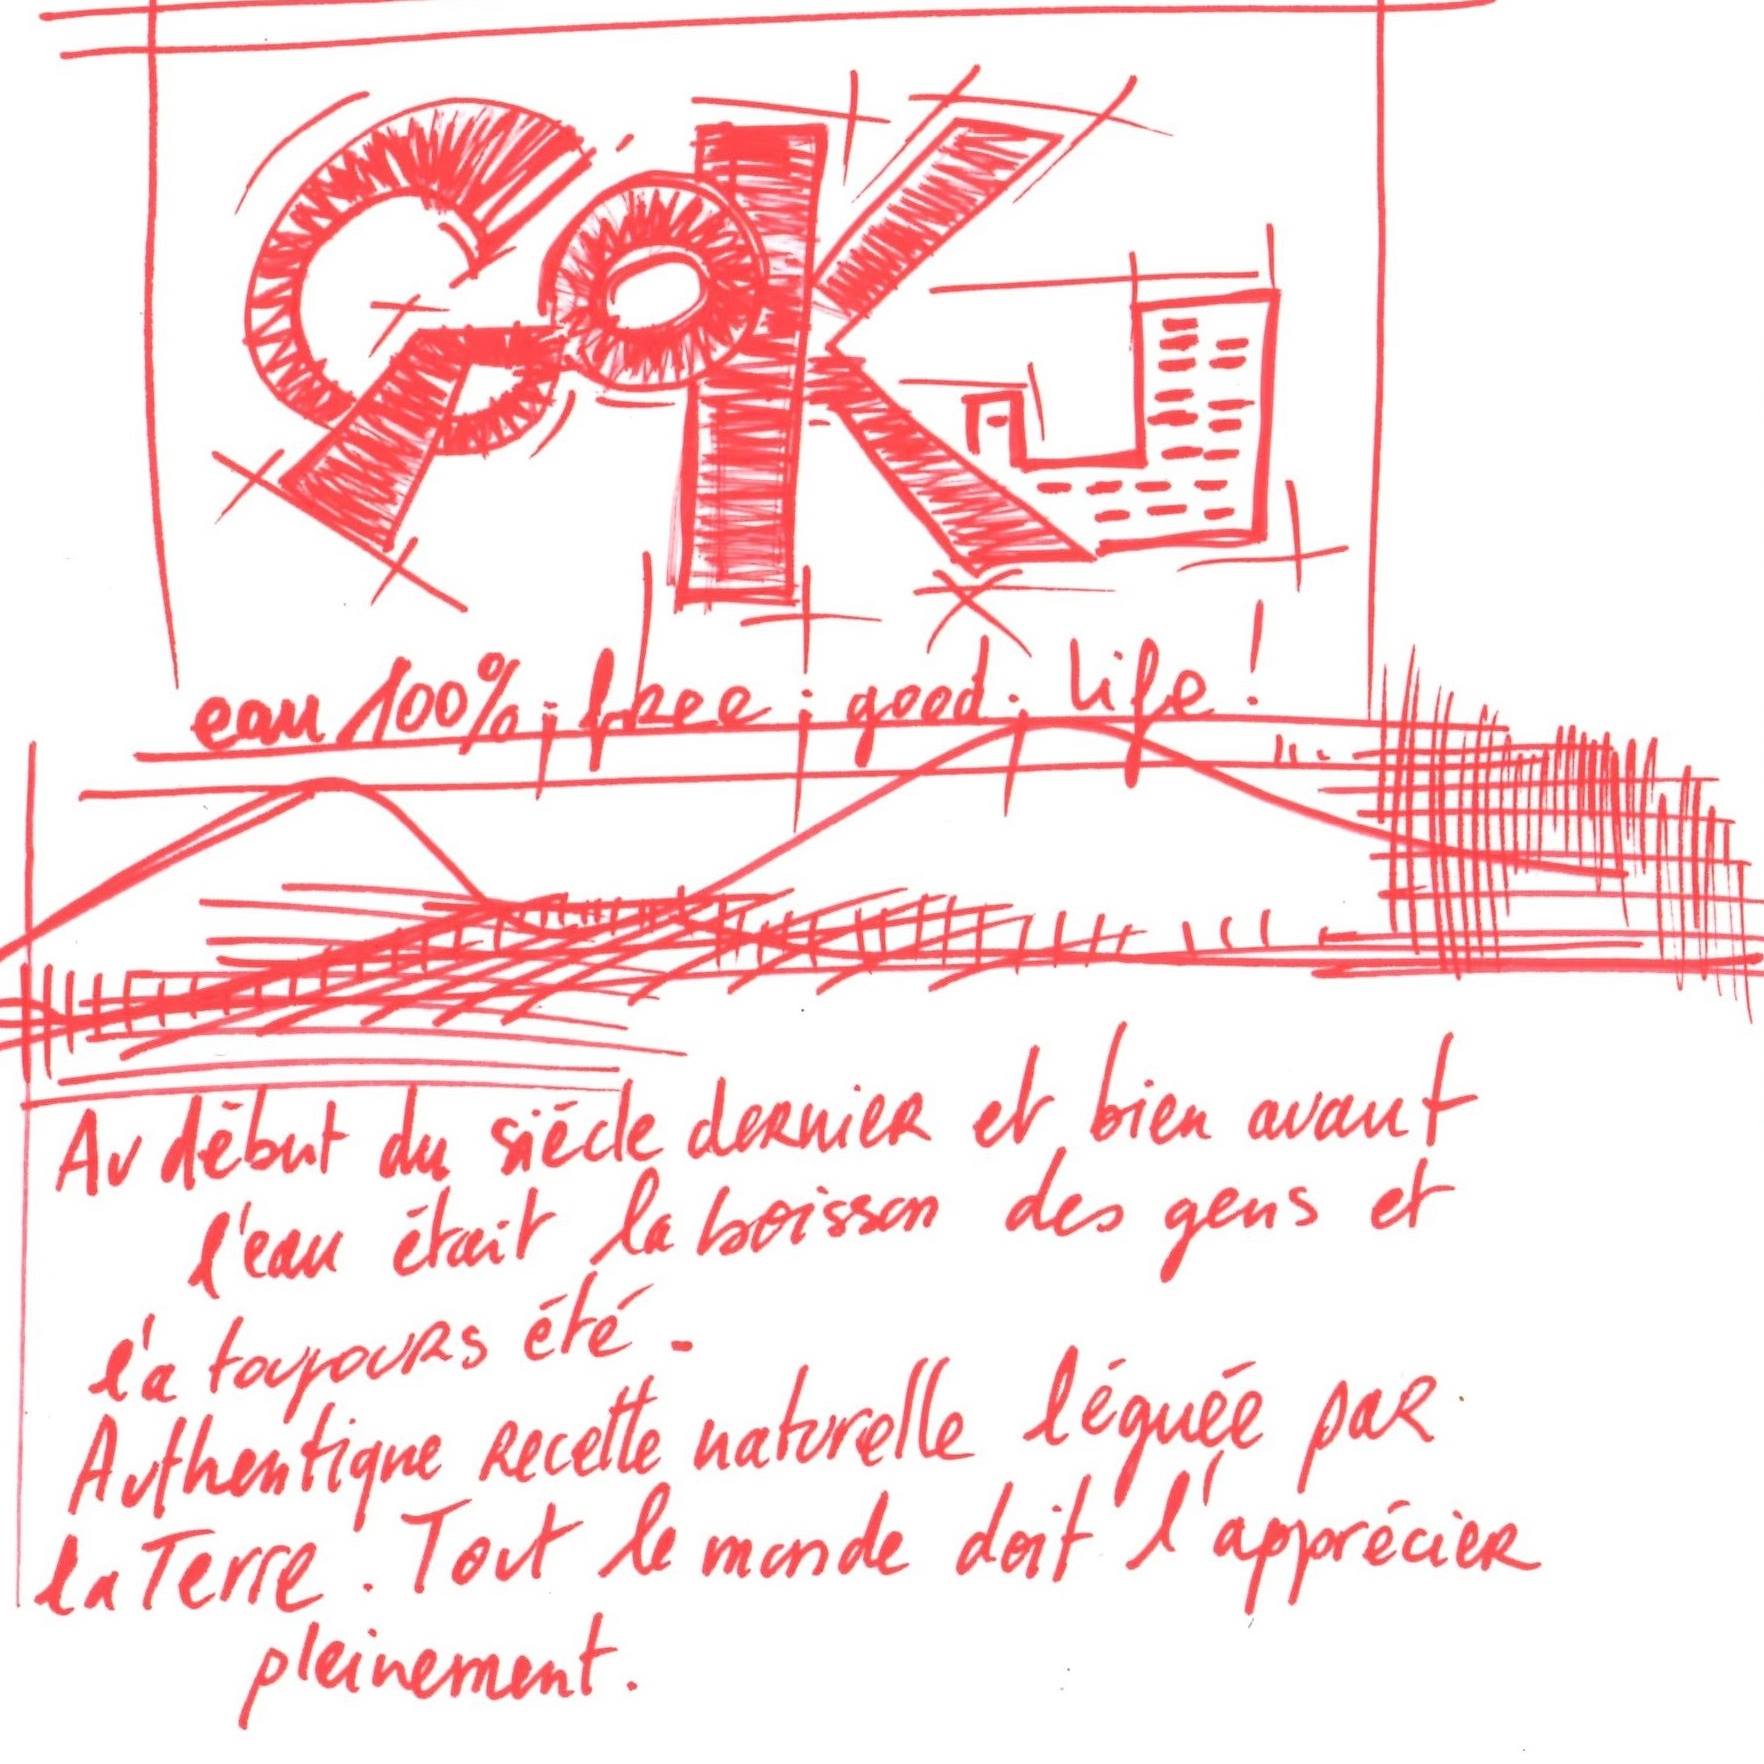 eau 100% ; free ; good ; life !
Au début du siécle dernier et bien avant
l'eau était la boisson des gens et
l'a toujours été -
Authentique recette naturelle léguée par
la Terre. Tout le monde doit l'apprécier
pleinement.